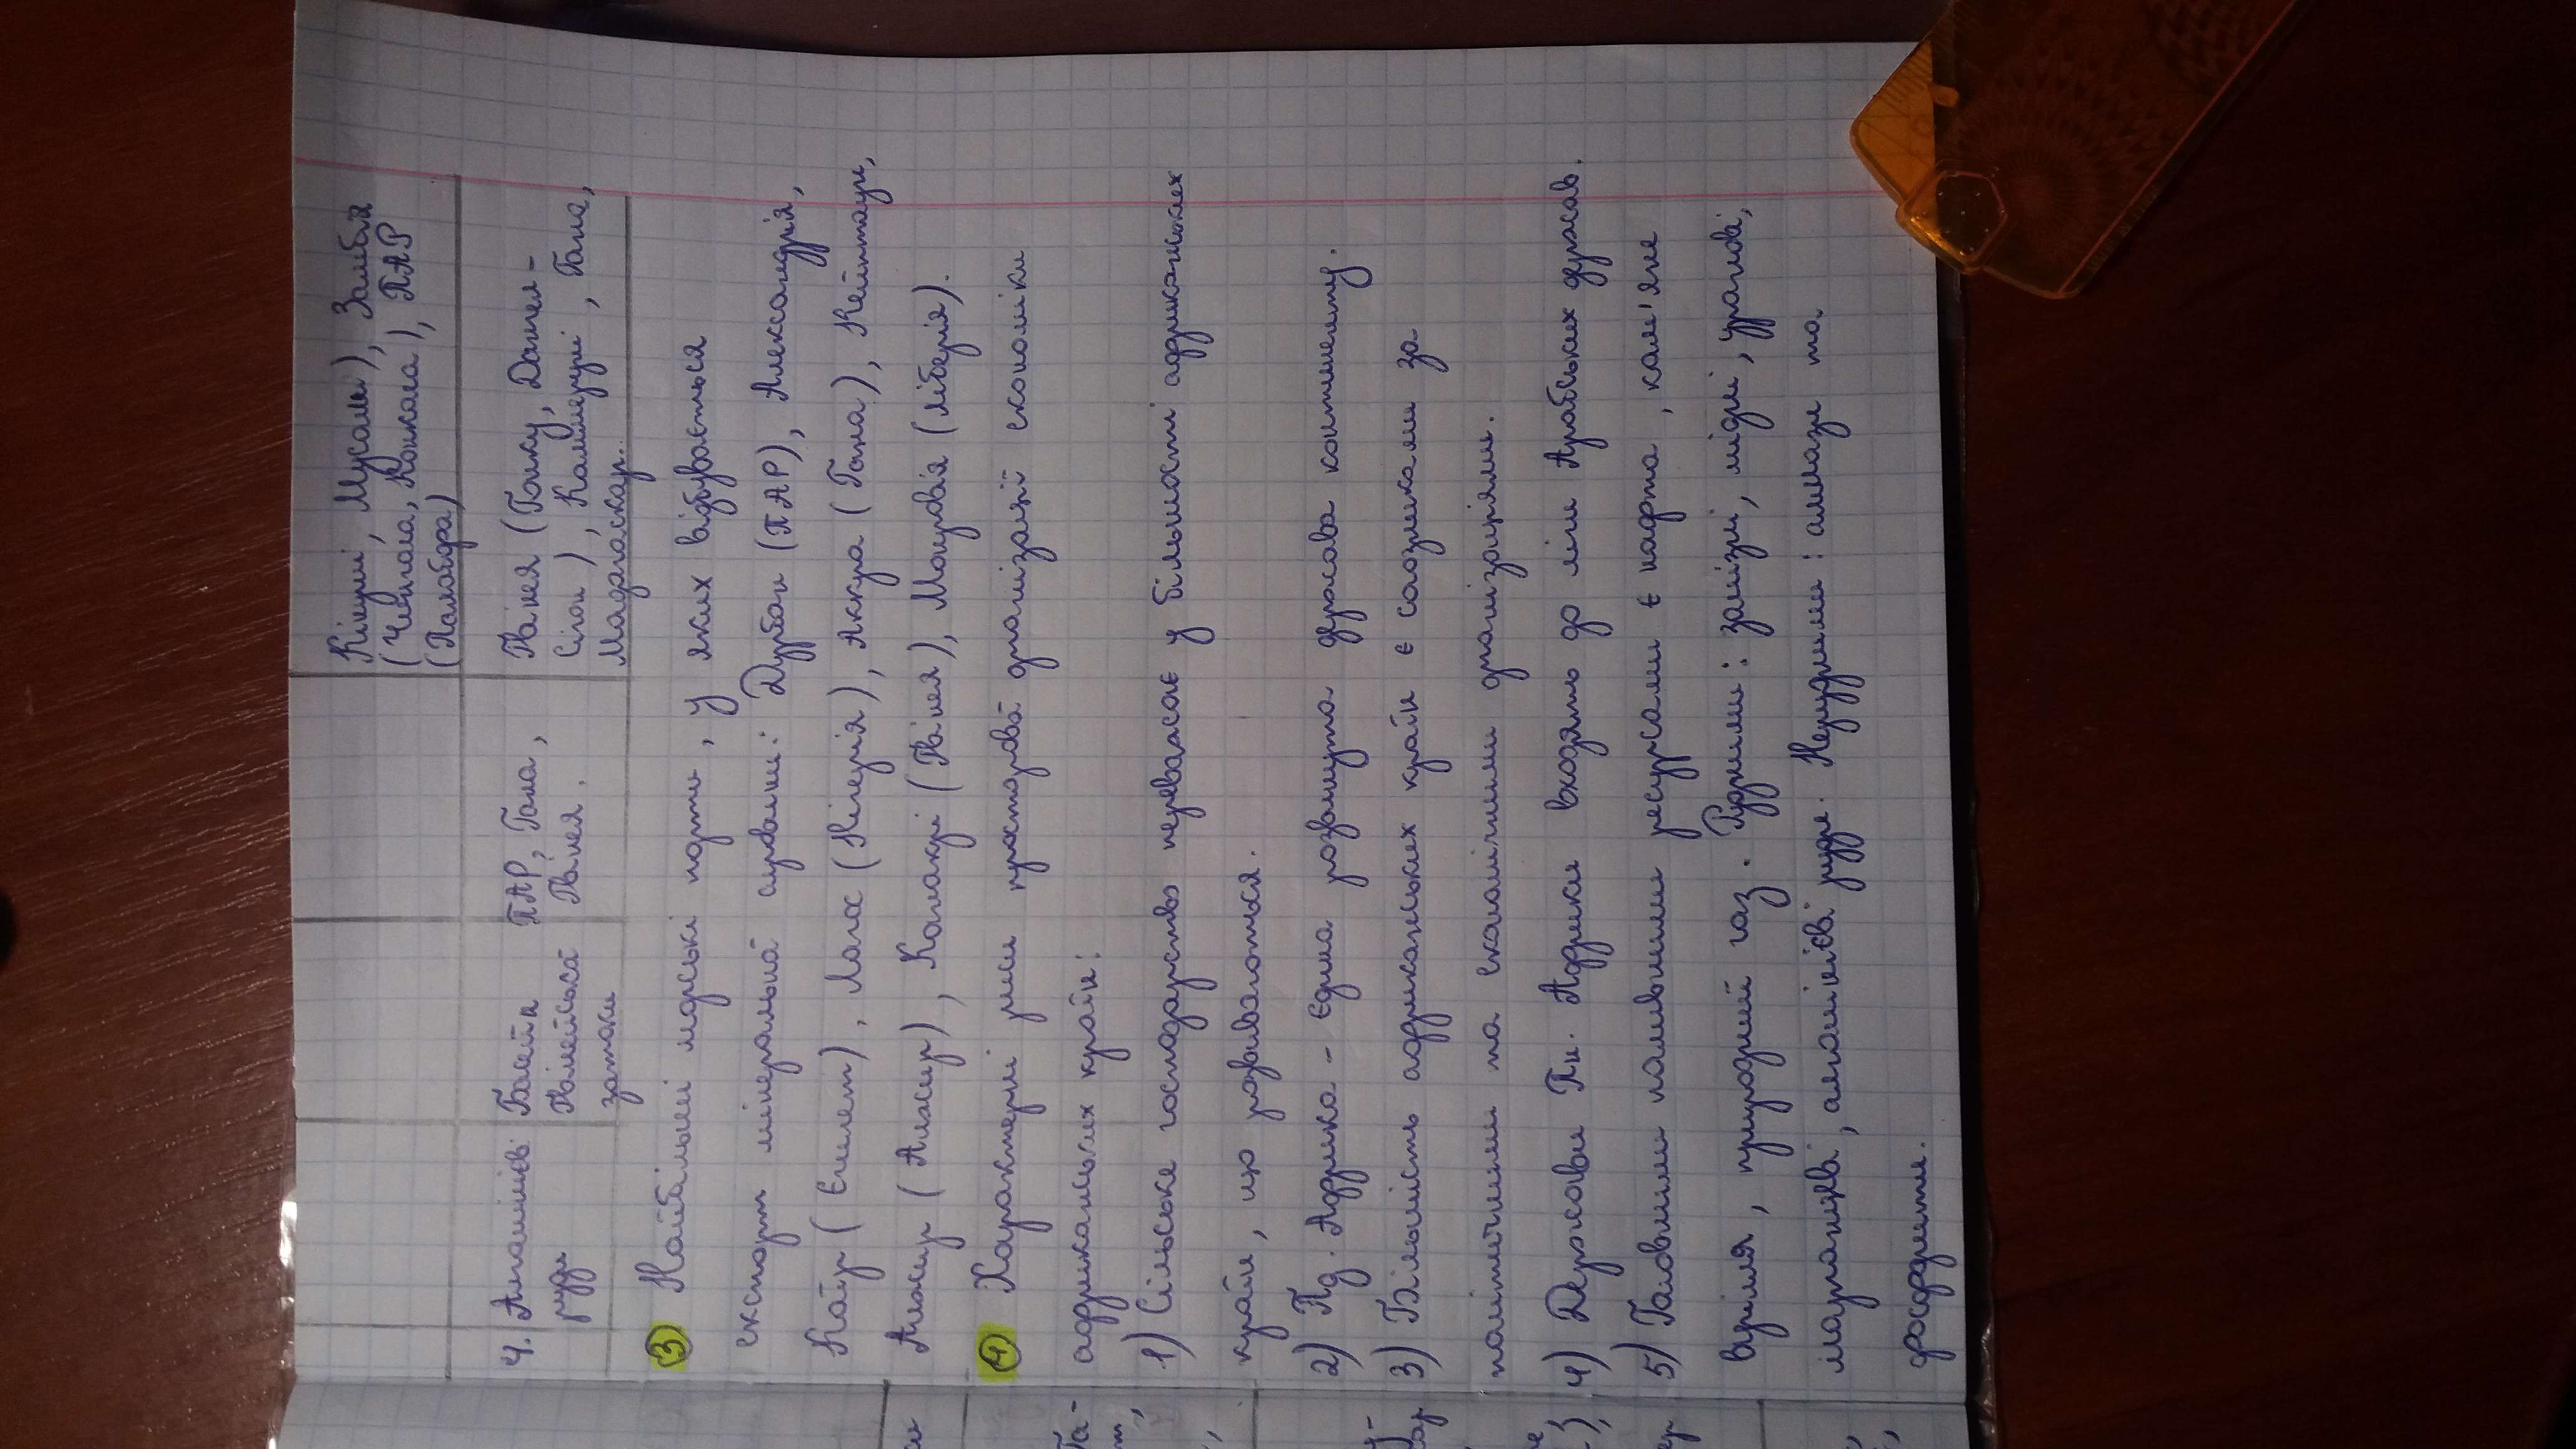 Кінуші, Мусаші), Замбія
(Чвінгола, Конкала), ПАР
(Палабора)
4. Алюмінієві руди
Басейн Гвінейської затоки
ПАР, Гана, Гвінея.
Гвінея (Боку, Данеа-
Сігон), Каммерун, Гана,
Мадагаскар.
3 Найбільші морські порти, у яких відбувається
експорт мінеральної сировини: Дурбан (ПАР), Александрія,
Каїр (Єгипет), Лагос (Нігерія), Аккра (Гана), Кейптаун,
Алжир (Алжир), Конакрі (Гвінея), Монровія (Ліберія).
4 Характерні риси просторової організації економіки
африканських країн:
1) Сільське господарство переважає у більшості африканських
країн, що розвиваються.
2) Пд. Африка - єдина розвинута держава континенту.
3) Більшість африканських країн є союзниками за
політичними та економічними організаціями.
4) Держави Пн. Африки входять до ліги Арабських держав.
5) Головними паливними ресурсами є нафта, кам'яне
вугілля, природний газ. Рудними: залізні, мідні, уранові,
марганцеві, алюмінієві руди. Нерудними: алмази та
фосфорити.